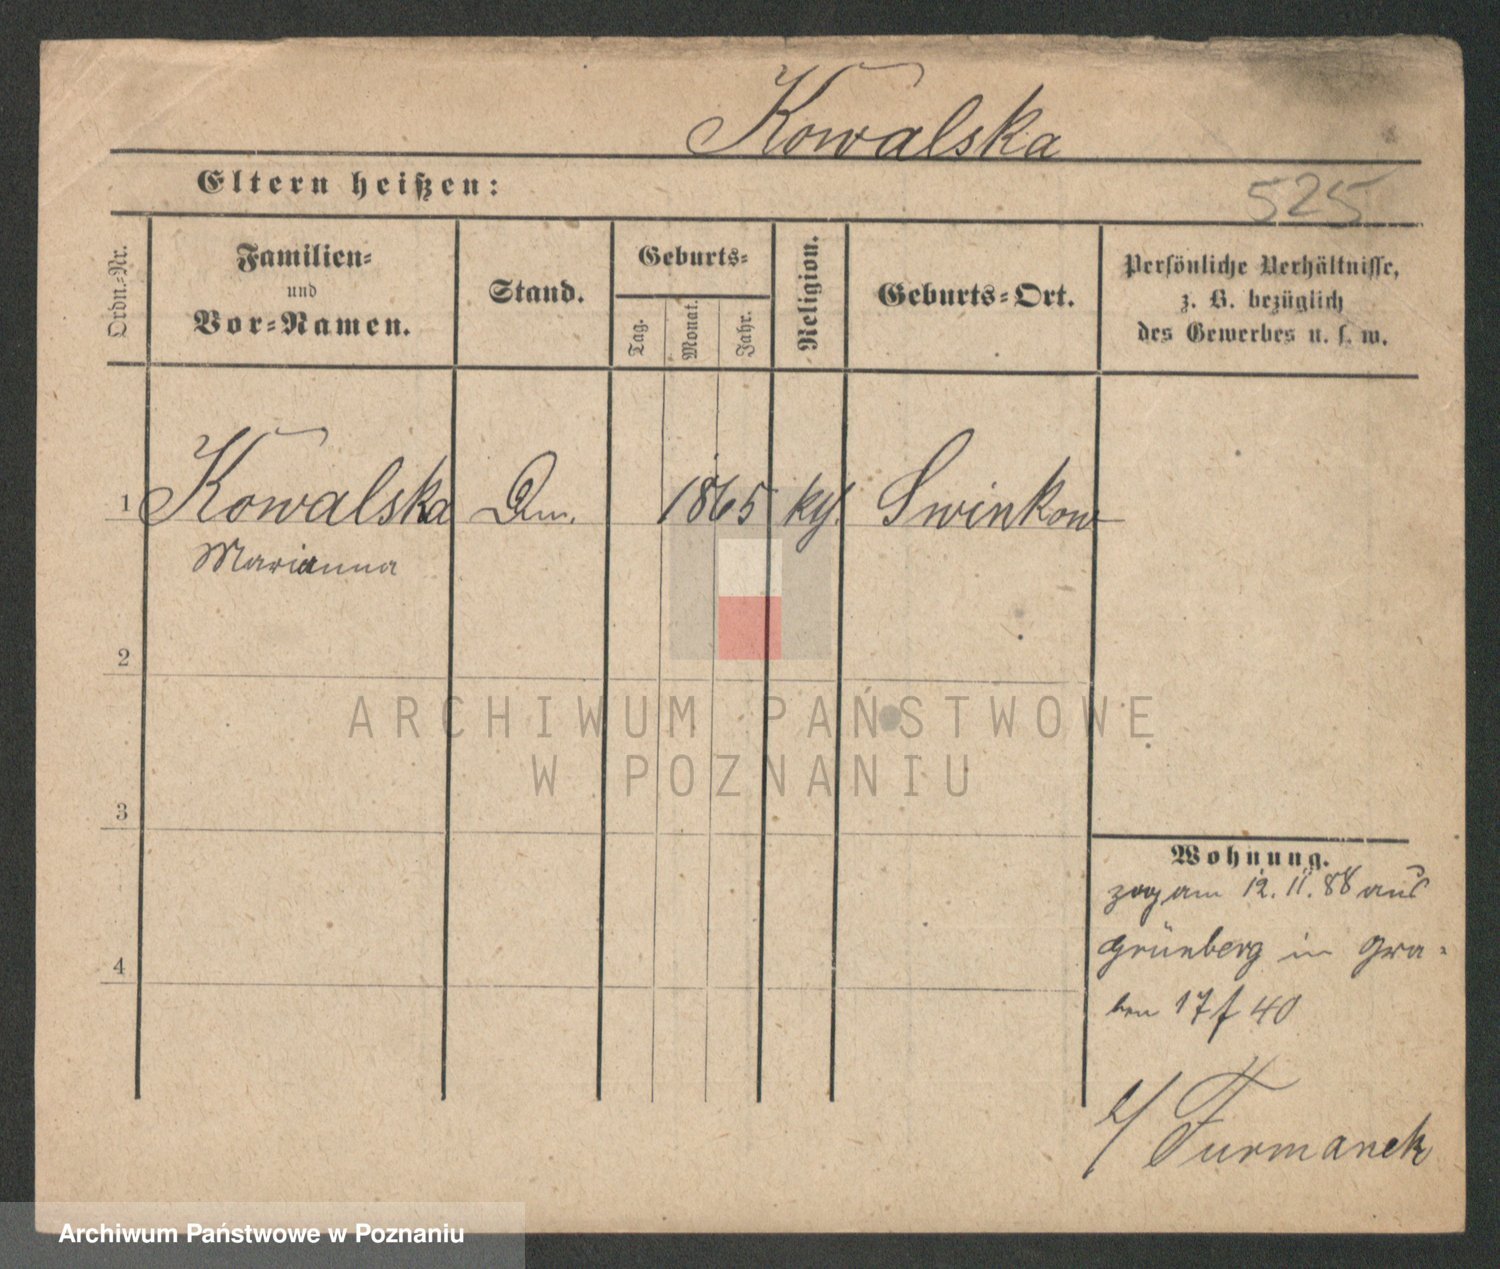 Kowalska
Eltern heißen:
525
Ordn.-Nr.
Familien-
und
Vor-Namen.
Stand.
Geburts-
Tag.
Monat.
Jahr.
Religion.
Geburts-Ort.
Persönliche Verhältnisse,
z. B. bezüglich
des Gewerbes u. s. w.
1 Kowalska 1865 Swinkow
Marianna
2
ARCHIWUM PAŃSTWOWE
W POZNANIU
3
Wohnung.
zog am 12. 11. 88 aus
Grünberg in Gra-
ben 17 f 40
b/ Furmanek
4
Archiwum Państwowe w Poznaniu